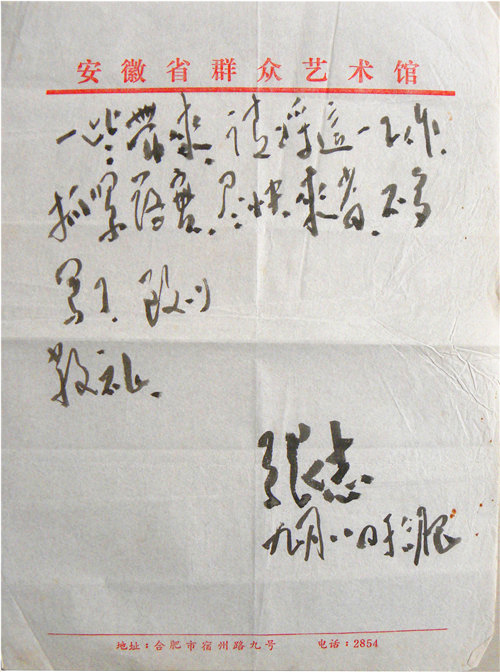 安徽省群众艺术馆
一些带来.请将这一工作.
抓紧落实.尽快来省.不多
写了.致以
敬礼.
张志
九月八日于合肥
地址:合肥市宿州路九号 电话:2854